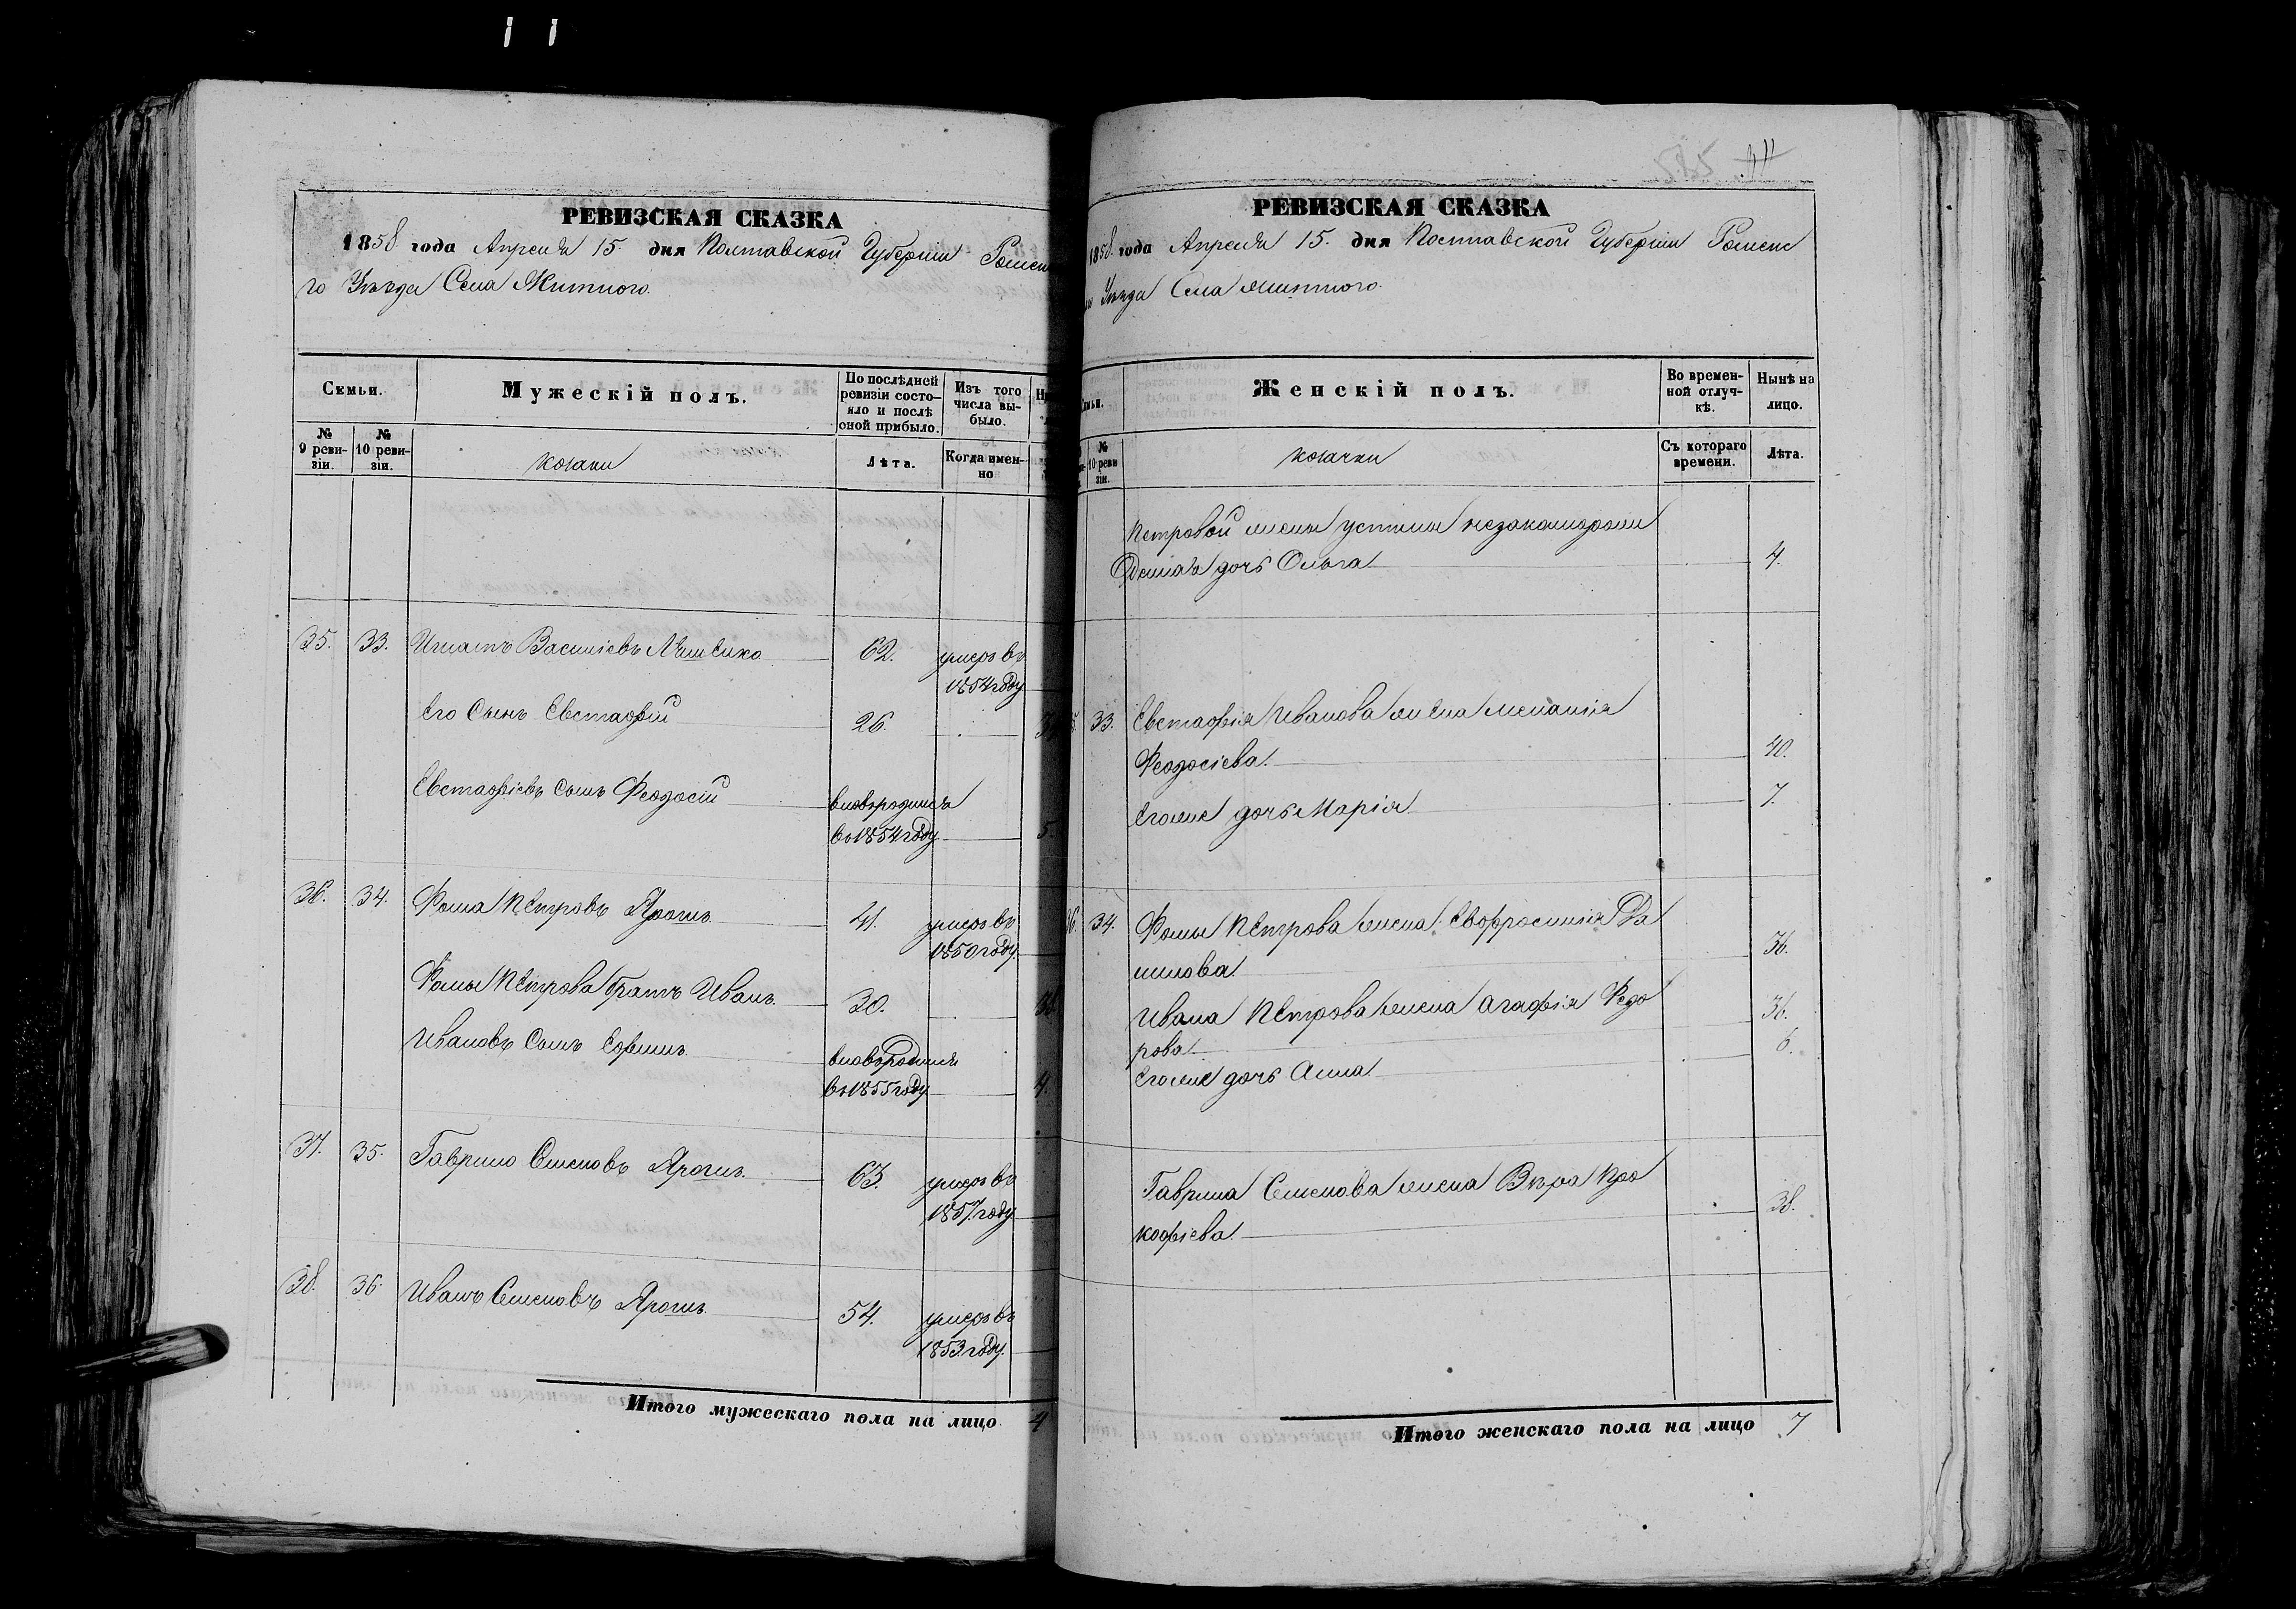 РЕВИЗСКАЯ СКАЗКА
1858 года Апреля 15. дня Полтавской Губернии Роменска
го Уѣзда Села Житного.
Семьи.
Мужескій полъ.
По послѣдней ревизіи состояло и послѣ оной прибыло.
Изъ того числа выбыло.
№ 9 ревизіи.
№ 10 ревизіи.
козаки
Лѣта.
Когда именно
35. 33. Игнатъ Василіевъ 62. умеръ въ
1854 году
Его Сынъ Евстафій 26.
Евстафіевъ сынъ Феодосій вновьродился
въ 1854 году 5
36. 34. Фома Петровъ Ярошъ 41. умеръ въ
1850 году
Фомы Петрова братъ Иванъ 30.
Ивановъ Сынъ Ефимъ вновьродился
въ 1855 году 4.
37. 35. Гаврило Семеновъ Ярошъ 63. умеръ въ
1857. году
38. 36. Иванъ Семеновъ Ярошъ 54. умеръ въ
1853. году
Итого мужескаго пола на лицо 4
585
РЕВИЗСКАЯ СКАЗКА
1858. года Апреля 15. дня Полтавской Губерніи Роменс
Уѣзда Села Житного.
Женскій полъ.
Во временной отлучкѣ.
Нынѣ на лицо.
№ 10 реви зіи.
козачки
Съ котораго времени.
Лѣта.
Петровой жены устины незаконорож
денная дочь Ольга 4.
33. Евстафія Иванова жена Меланія
Феодосіева. 40.
Его дочь Марія 7.
34. Фомы Петрова жена Евфросинія Да
нилова 36.
Ивана Петрова жена Агафія Федо 36.
рова
Его дочь Анна 6.
Гаврила Семенова жена Вѣра Про
кофіева. 38.
Итого женскаго пола на лицо 7